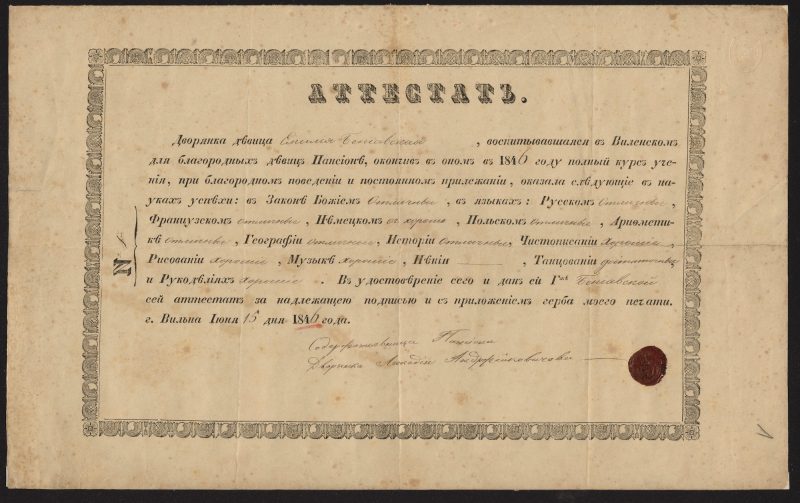 АТТЕСТАТЪ.
Дворянка дѣвица Эмилія , воспитывавшаяся въ Виленскомъ
для благородныхъ дѣвицъ Пансіонѣ, окончивъ въ ономъ въ 1846 году полный курсъ уче-
нія, при благородномъ поведеніи и постоянномъ прилежаніи, оказала слѣдующіе въ на-
укахъ успѣхи: въ Законѣ Божіемъ отличные , въ языкахъ: Русскомъ отличные ,
Французскомъ отличные , Нѣмецкомъ хорошіе , Польскомъ отличные , Ариѳмети-
кѣ отличные , Географіи отличные , Исторіи отличные , Чистописаніи хорошіе ,
Рисованіи хорошіе , Музыкѣ хорошіе , Пѣніи , Танцованіи
и Рукодѣліяхъ хорошіе . Въ удостовѣреніе сего и данъ ей Г
сей аттестатъ за надлежащею подписью и съ приложеніемъ герба моего печати.
г. Вильна Іюня 15 дня 1846 года.
Содержательница Пансіона
N